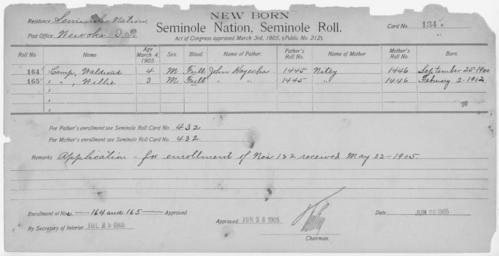 NEW BORN
Residence: Seminole Nation
Seminole Nation, Seminole Roll.
Card No. 134
Post Office: Wewoka I.T.
Act of Congress approved March 3rd, 1905, (Public No. 212).
Roll No. Name Age March 4, 1905. Sex. Blood. Name of Father. Father's Roll No. Name of Mother. Mother's Roll No. Born.
164 Camp, 4 M Full John 1445 1446 September 25 1900
165 " , Willie 3 M Full " " 1445 " 1446 February 2
For Father's enrollment see Seminole Roll Card No. 432
For Mother's enrollment see Seminole Roll Card No. 432
Remarks Application for enrollment of Nos 1&2 received May 22-1905
Enrollment of Nos. 164 and 165 Approved
By Secretary of Interior 1905
Approved 1905
Chairman.
Date 1905